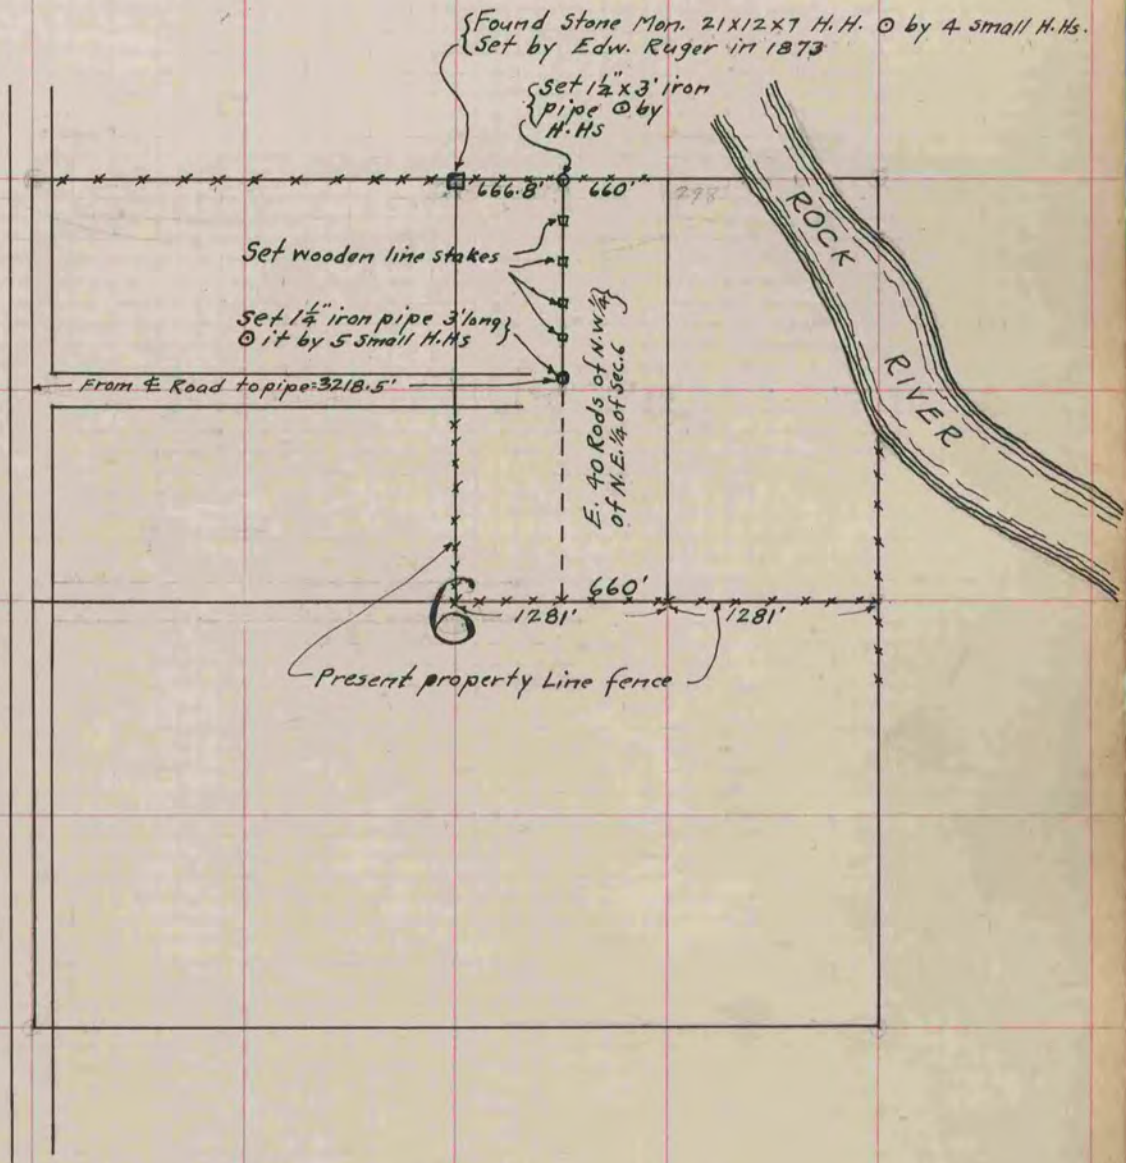 {Found Stone Mon. 21x12x7 H.H. ⊙ by 4 small H.Hs.
{Set by Edw. Ruger in 1873
{Set 1¼"x3' iron
{pipe ⊙ by
H.Hs
666.8' 660'
298
ROCK
RIVER
Set wooden line stakes
Set 1¼" iron pipe 3' long}
⊙ it by 5 small H.Hs}
From ℄ Road to pipe=3218.5'
E. 40 Rods of N.W.¼}
of N.E.¼ of Sec.6}
6
660'
1281' 1281'
Present property Line fence